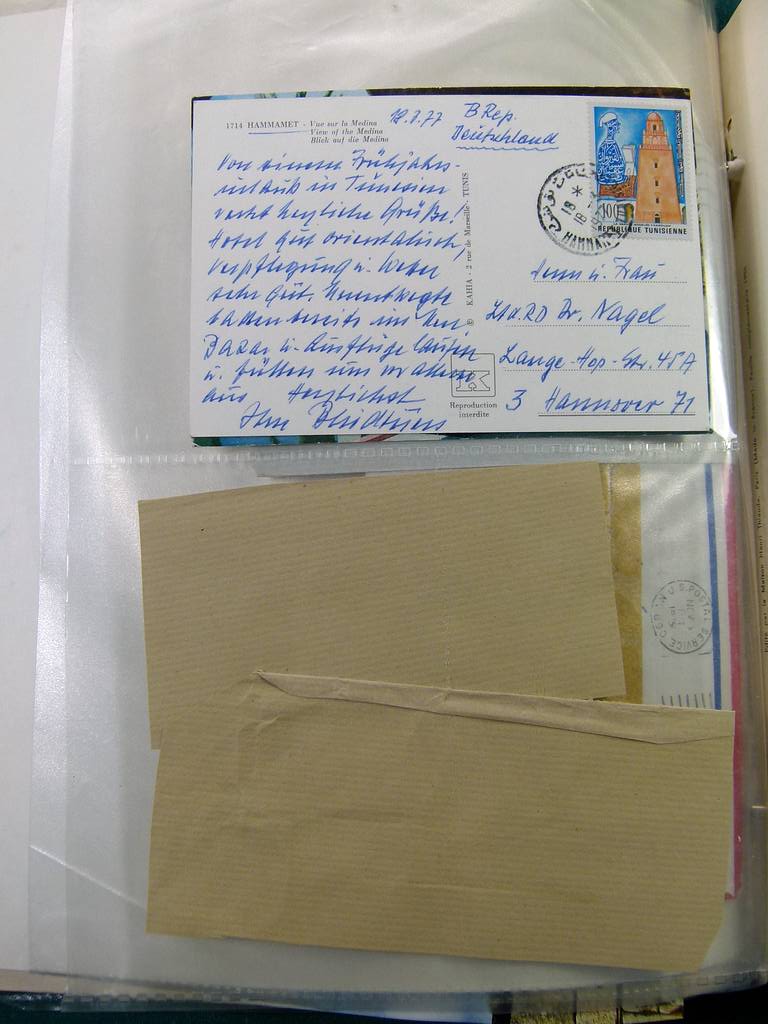 1714 HAMMAMET - Vue sur la Medina
View of the Medina
Blick auf die Medina
18.3.77
BRep.
Deutschland
Von einem Frühjahrs-
in Tunesien
recht herzliche Grüße!
Hotel gut orientalisch,
Verpflegung u. Wetter
sehr gut. Unentwegte
baden bereits im Meer
Bazar u. Ausflüge laufen
u. füllen uns vor allem
aus Herzlichst
Ihre
© KAHIA - 2 rue de Marseille - TUNIS
Reproduction
interdite
100
REPUBLIQUE TUNISIENNE
Herrn u. Frau
Ltd. RD Dr. Nagel
Lange-Hop-Str. 45A
3 Hannover 71
U.S. POSTAL SERVICE